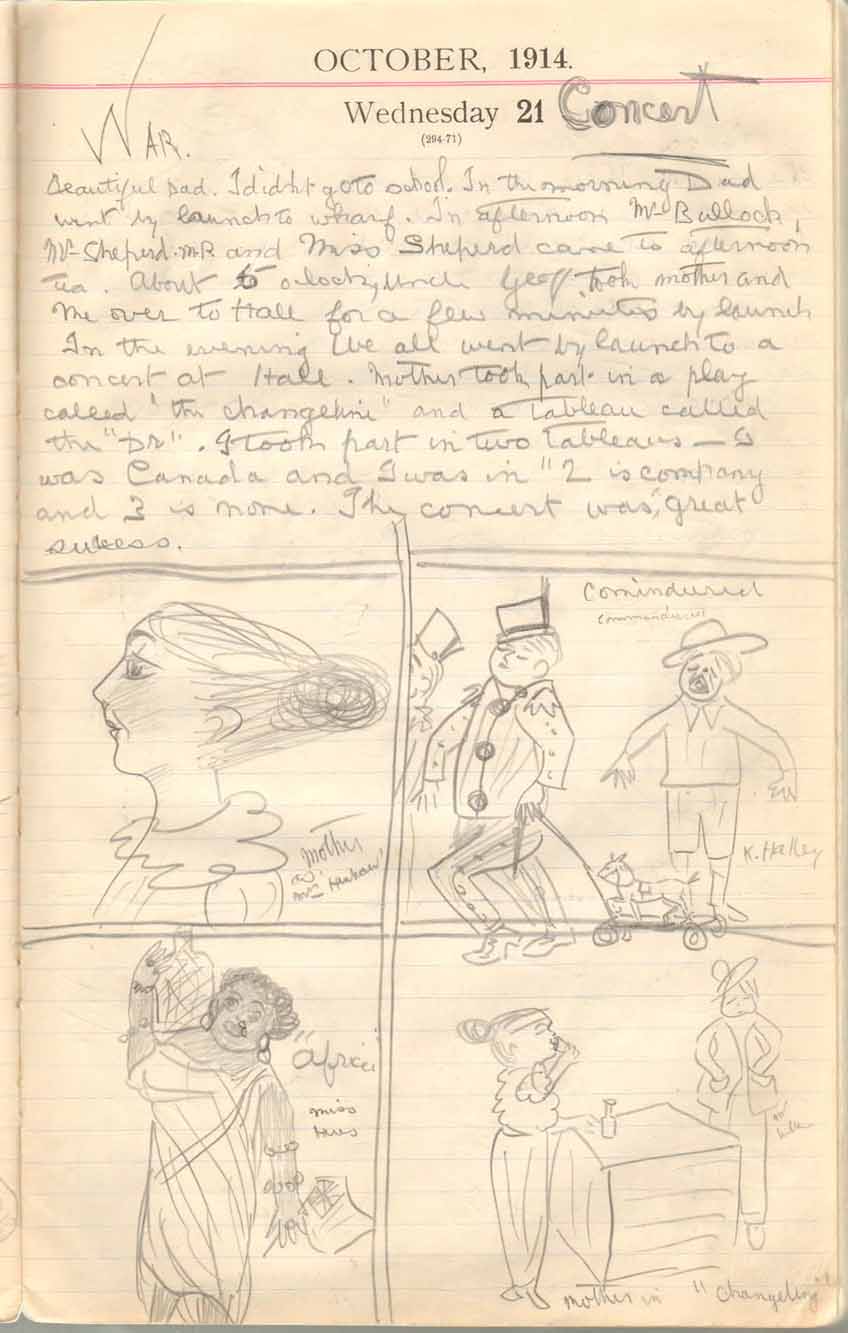 OCTOBER, 1914.
Wednesday 21 Concert
(294-71)
WAR.
Beautiful day. I didht go to school. In the morning Dad
went by launch to wharf. In afternoon Mr Bullock,
Mr Sheperd and Miss Sheperd came to afternoon
tea. About 5 o clock, Uncle Geoff took mother and
me over to Hall for a few minutes by launch
In the evening We all went by launch to a
concert at Hall. Mother took part in a play
called "the changeline" and a Tableau called
the "Dr". I took part in two Tableaus — I
was Canada and I was in "2 is company
and 3 is none. The concert was, great
sukess.
Comindured
mother
as
Mrs
K. Halley
"Africa"
miss
mother in "changeling"